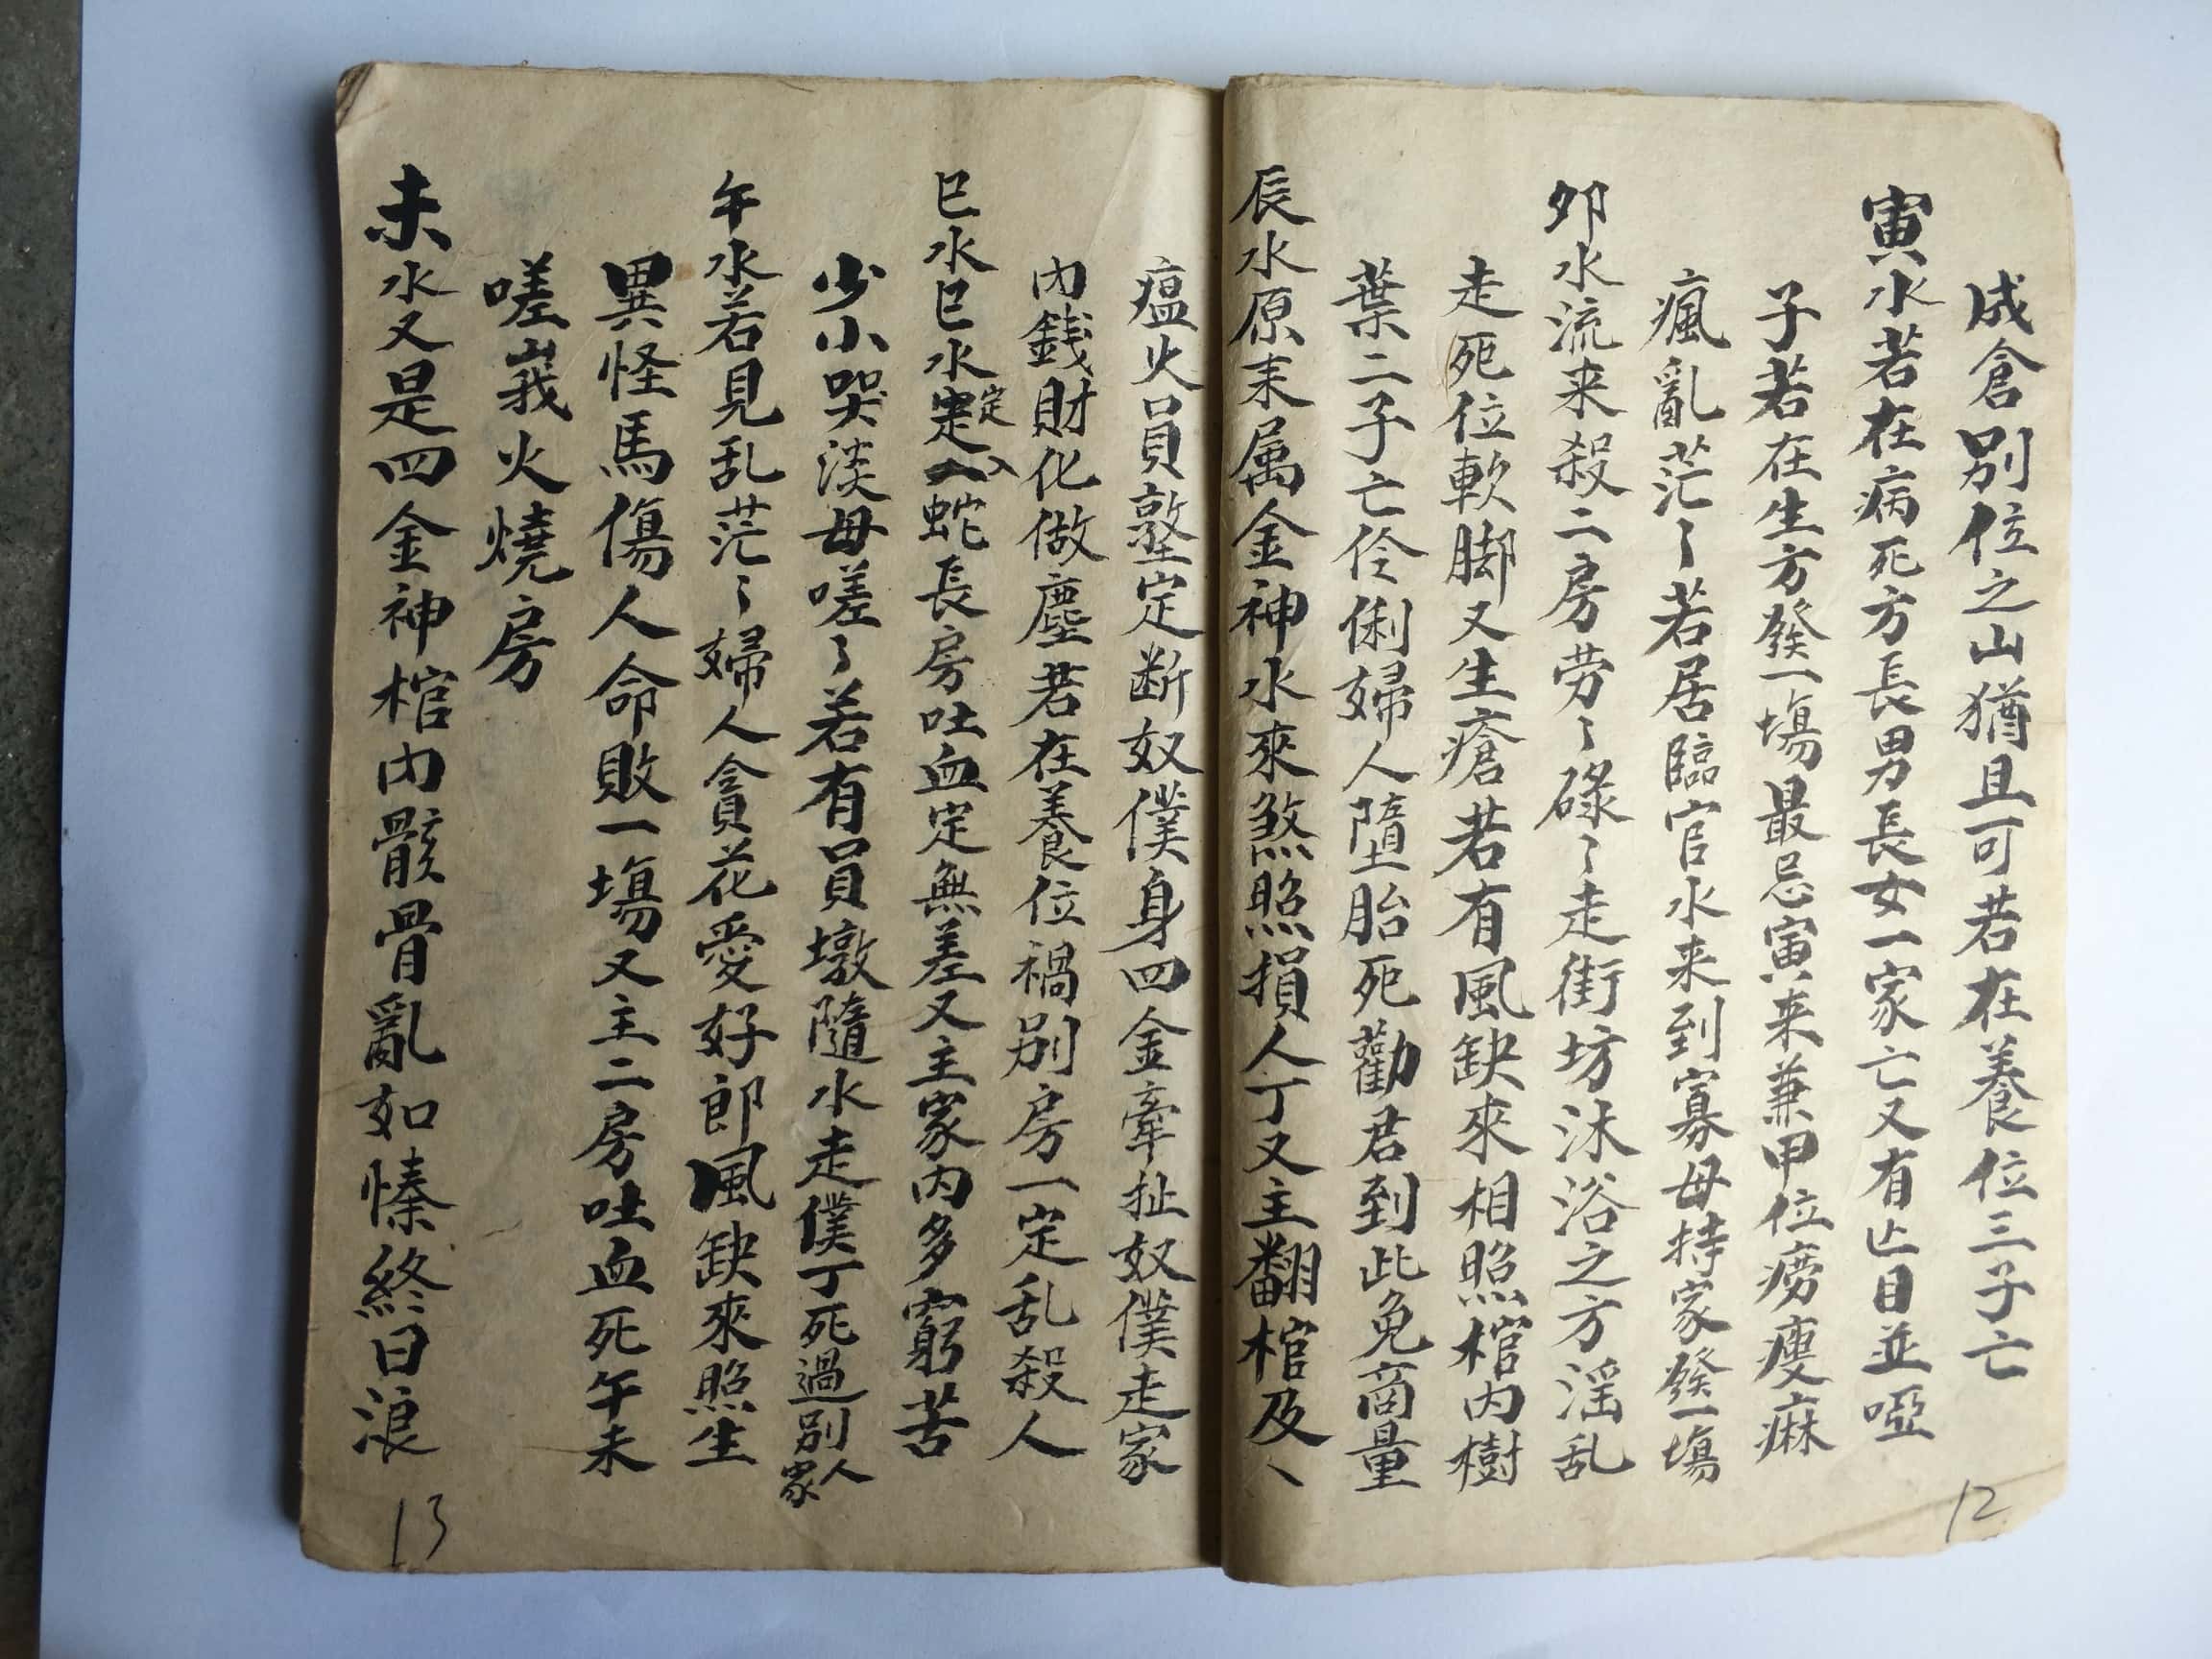 成倉別位之山猶且可若在養位三子亡
寅水若在病死方長男長女一家亡又有亾目並啞
子若在生方發一塲最忌寅来兼甲位癆瘦痳
瘋亂茫〻若居臨官水来到寡母持家發一塲
夘水流来殺二房劳〻碌〻走街坊沐浴之方淫乱
走死位軟脚又生瘡若有風缺來相照棺內樹
葉二子亡伶俐婦人墮胎死勸君到此免商量
辰水原来属金神水來煞照損人丁又主翻棺及、
瘟火員墪定断奴僕身四金牽扯奴僕走家
內錢財化做塵若在養位禍别房一定乱殺人
巳水巳水定入蛇長房吐血定無差又主家内多窮苦
少小哭淡母嗟〻若有員墩隨水走僕丁死過别人家
午水若見乱茫〻婦人貪花愛好郎風缺來照生
異怪馬傷人命敗一塲又主二房吐血死午未
嗟峩火燒房
未水又是四金神棺内骸骨亂如愫終日浪
12
13